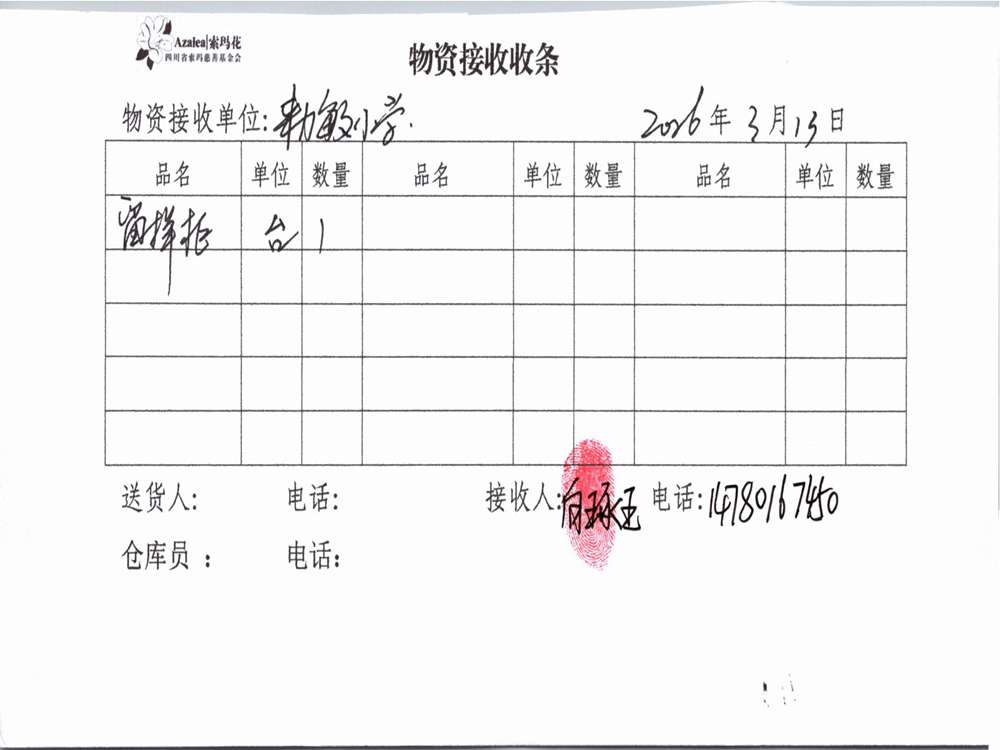 Azalea|索玛花
四川省索玛慈善基金会
物资接收收条
物资接收单位: 勒敏小学. 2026年3月13日
品名 单位 数量 品名 单位 数量 品名 单位 数量
留样柜 台 1
送货人: 电话: 接收人: 电话: 14780167450
仓库员 : 电话: